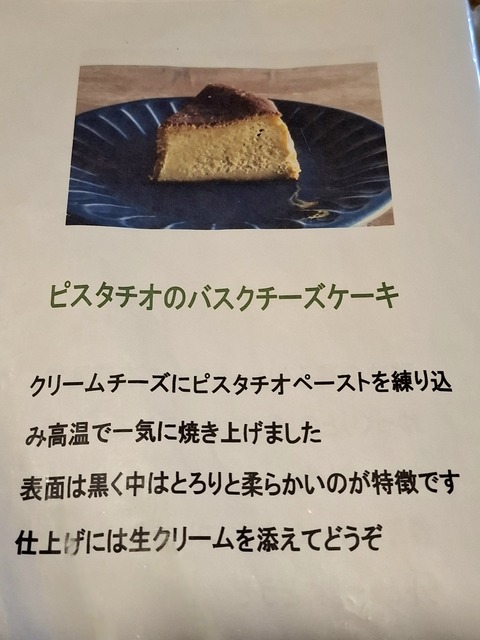 ピスタチオのバスクチーズケーキ
クリームチーズにピスタチオペーストを練り込
み高温で一気に焼き上げました
表面は黒く中はとろりと柔らかいのが特徴です
仕上げには生クリームを添えてどうぞ